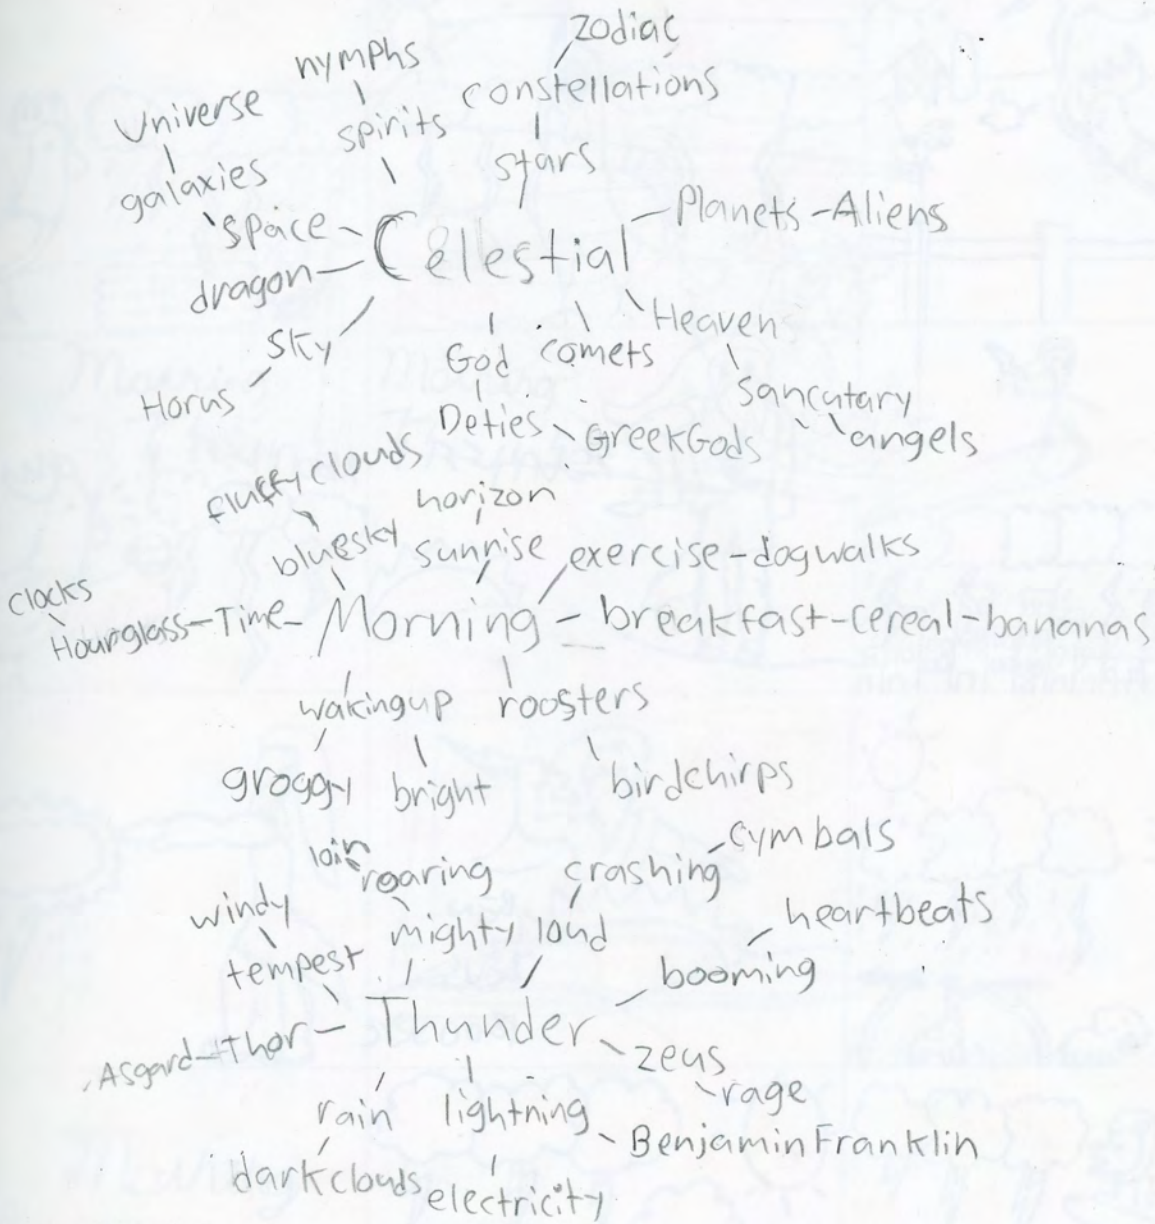 zodiac
nymphs
constellations
Universe
spirits
stars
galaxies
Planets - Aliens
space
Celestial
dragon
Heaven
sky
God
comets
Horus
sancutary
Deties
GreekGods
angels
fluffy clouds
horizon
bluesky
sunrise
exercise - dogwalks
clocks
Hourglass - Time - Morning - breakfast - cereal - bananas
wakingup
roosters
groggy
bright
birdchirps
cymbals
loin
roaring
crashing
windy
mighty
loud
heartbeats
tempest
booming
Asgard - Thor - Thunder
zeus
rage
rain
lightning
Benjamin Franklin
darkclouds
electricity